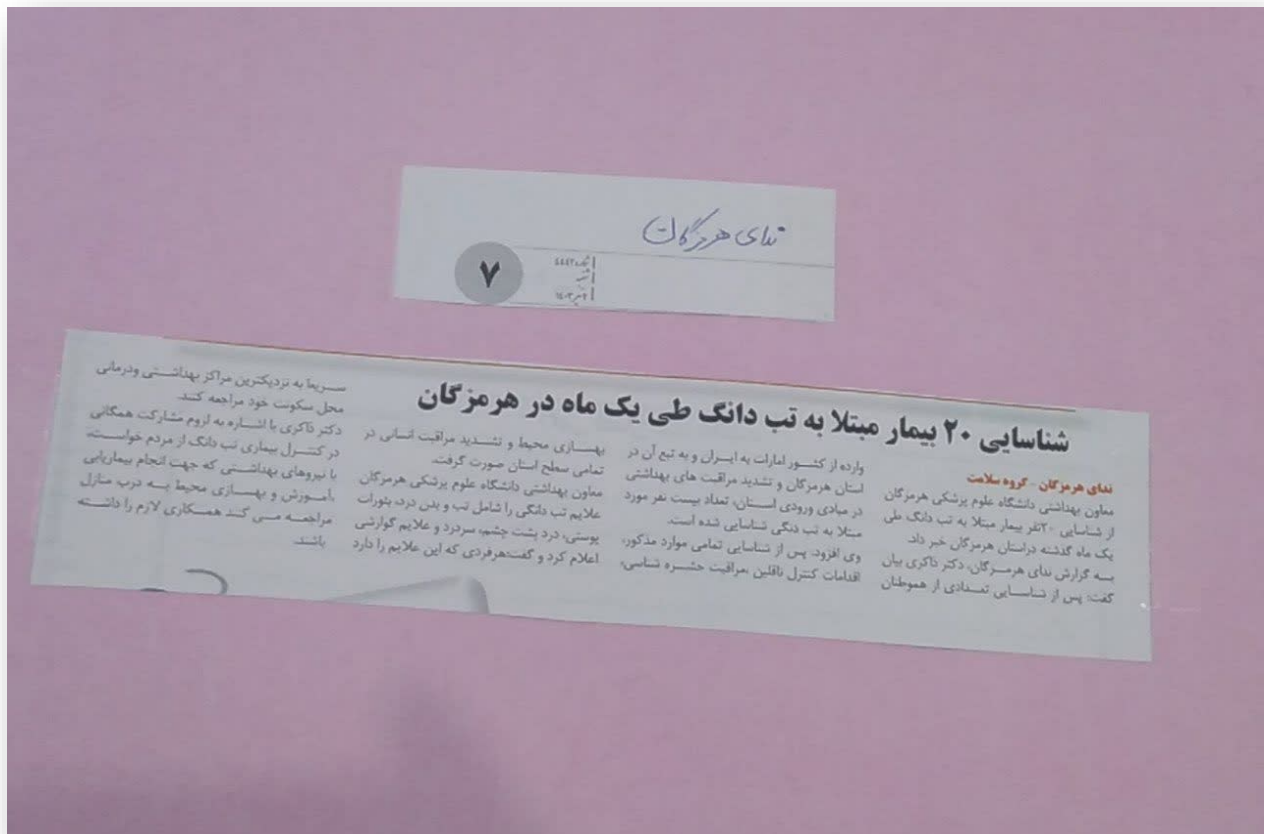 ندای هرمزگان
۷
شناسایی ۲۰ بیمار مبتلا به تب دانگ طی یک ماه در هرمزگان
ندای هرمزگان - گروه سلامت
معاون بهداشتی دانشگاه علوم پزشکی هرمزگان
از شناسایی ۲۰نفر بیمار مبتلا به تب دانگ طی
یک ماه گذشته دراستان هرمزگان خبر داد.
به گزارش ندای هرمزگان، دکتر ذاکری بیان
گفت: پس از شناسایی تعدادی از هموطنان
وارده از کشور امارات به ایران و به تبع آن در
استان هرمزگان و تشدید مراقبت های بهداشتی
در مبادی ورودی استان، تعداد بیست نفر مورد
مبتلا به تب دنگی شناسایی شده است.
وی افزود: پس از شناسایی تمامی موارد مذکور،
اقدامات کنترل ناقلین ،مراقبت حشره شناسی،
بهسازی محیط و تشدید مراقبت انسانی در
تمامی سطح استان صورت گرفت.
معاون بهداشتی دانشگاه علوم پزشکی هرمزگان
علایم تب دانگی را شامل تب و بدن درد، بثورات
پوستی، درد پشت چشم، سردرد و علایم گوارشی
اعلام کرد و گفت:هرفردی که این علایم را دارد
سریعا به نزدیکترین مراکز بهداشتی ودرمانی
محل سکونت خود مراجعه کند.
دکتر ذاکری با اشاره به لزوم مشارکت همگانی
در کنترل بیماری تب دانگ از مردم خواست،
با نیروهای بهداشتی که جهت انجام بیماریابی
،آموزش و بهسازی محیط به درب منازل
مراجعه می کند همکاری لازم را داشته
باشند.